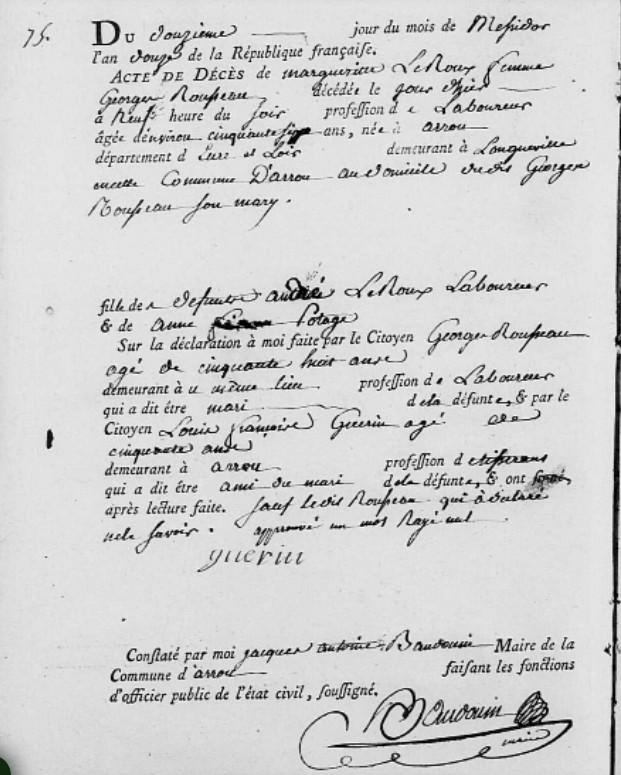 75.
Du douzième jour du mois de Messidor
l'an douze de la République française.
Acte de Décès de margueritte LeRoux femme
Georges Rousseau décédée le jour d'hier
à neuf heure du soir profession de Laboureur
âgée d'environ cinquante six ans, née à arrou
département d'Eure et Loir demeurant à Longueville
en cette Commune D'arrou au domicile du dit Georges
Rousseau son mary.
fille de defunts andré LeRoux Laboureur
& de anne Potage
Sur la déclaration à moi faite par le Citoyen Georges Rousseau
agé de cinquante huit ans
demeurant au même lieu profession de Laboureur
qui a dit être mari de la défunte, & par le
Citoyen Louis françois Guerin agé de
cinquante ans
demeurant à arrou profession de tisserans
qui a dit être ami du mari de la défunte, & ont signé
après lecture faite. sauf le dit Rousseau qui à declaré
ne le savoir. approuvé un mot Rayé nul
guerin
Constaté par moi jacques antoine Baudouin Maire de la
Commune d'arrou faisant les fonctions
d'officier public de l'état civil, soussigné.
Baudouin
maire